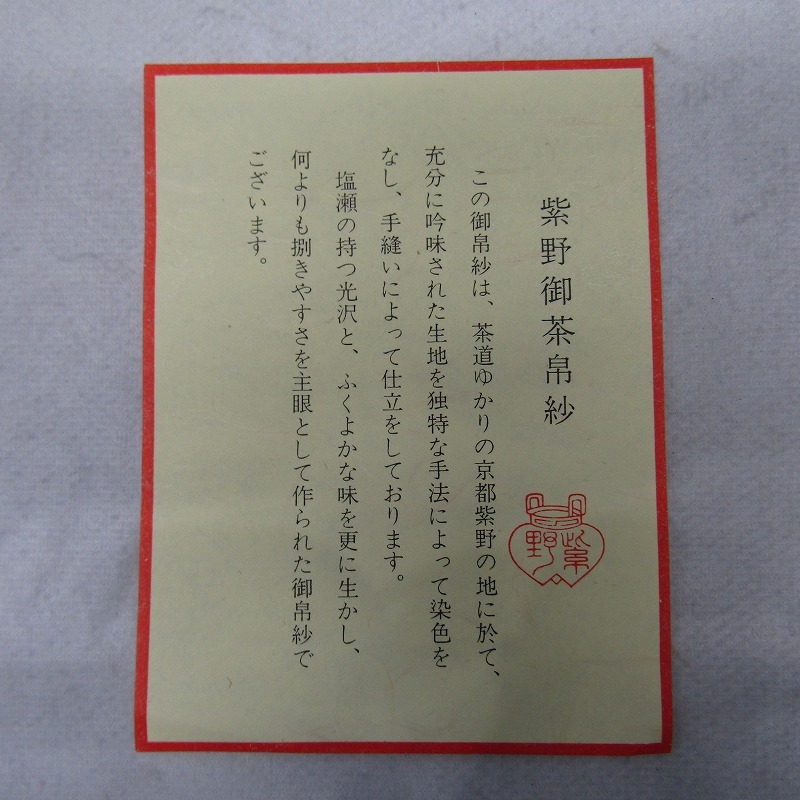 紫野御茶帛紗
この御帛紗は、茶道ゆかりの京都紫野の地に於て、
充分に吟味された生地を独特な手法によって染色を
なし、手縫いによって仕立をしております。
塩瀬の持つ光沢と、ふくよかな味を更に生かし、
何よりも捌きやすさを主眼として作られた御帛紗で
ございます。
紫野